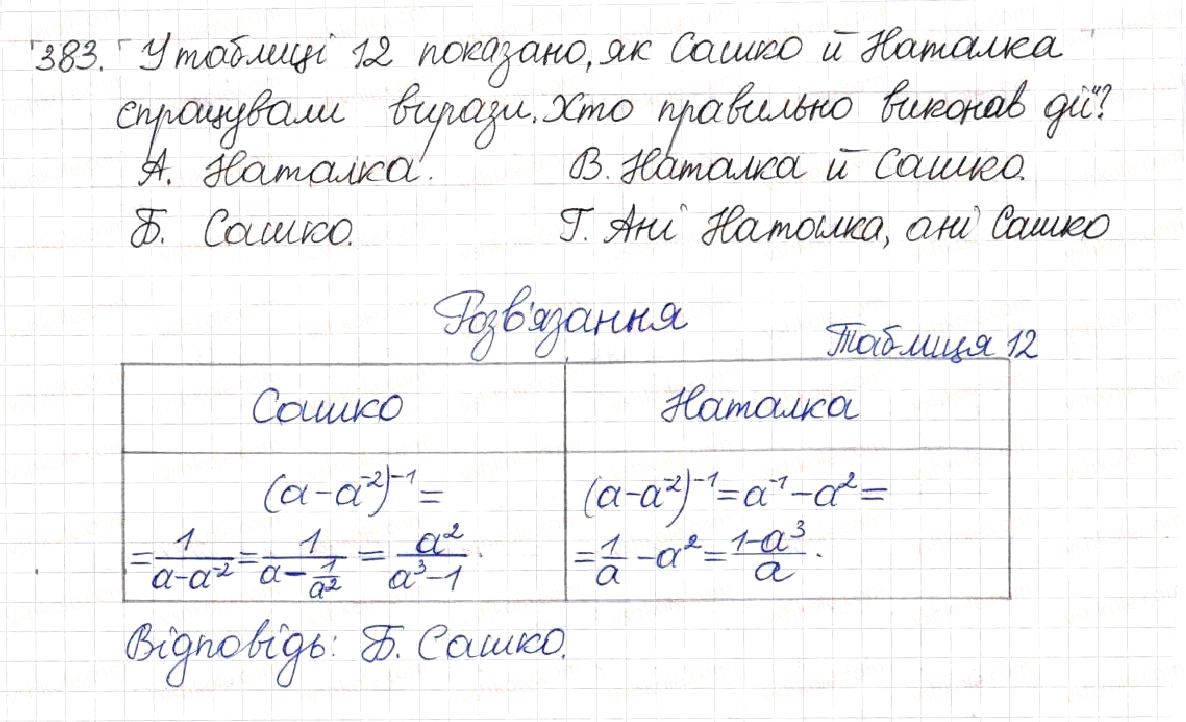 383. У таблиці 12 показано, як Сашко й Наталка
спрощували вирази. Хто правильно виконав дії?
А. Наталка. В. Наталка й Сашко.
Б. Сашко. Г. Ані Наталка, ані Сашко
Розв'язання
Таблиця 12
Сашко Наталка
(a-a⁻²)⁻¹= (a-a⁻²)⁻¹=a⁻¹-a²=
=1/(a-a⁻²)=1/(a-1/a²)=a²/(a³-1). =1/a-a²=(1-a³)/a.
Відповідь: Б. Сашко.